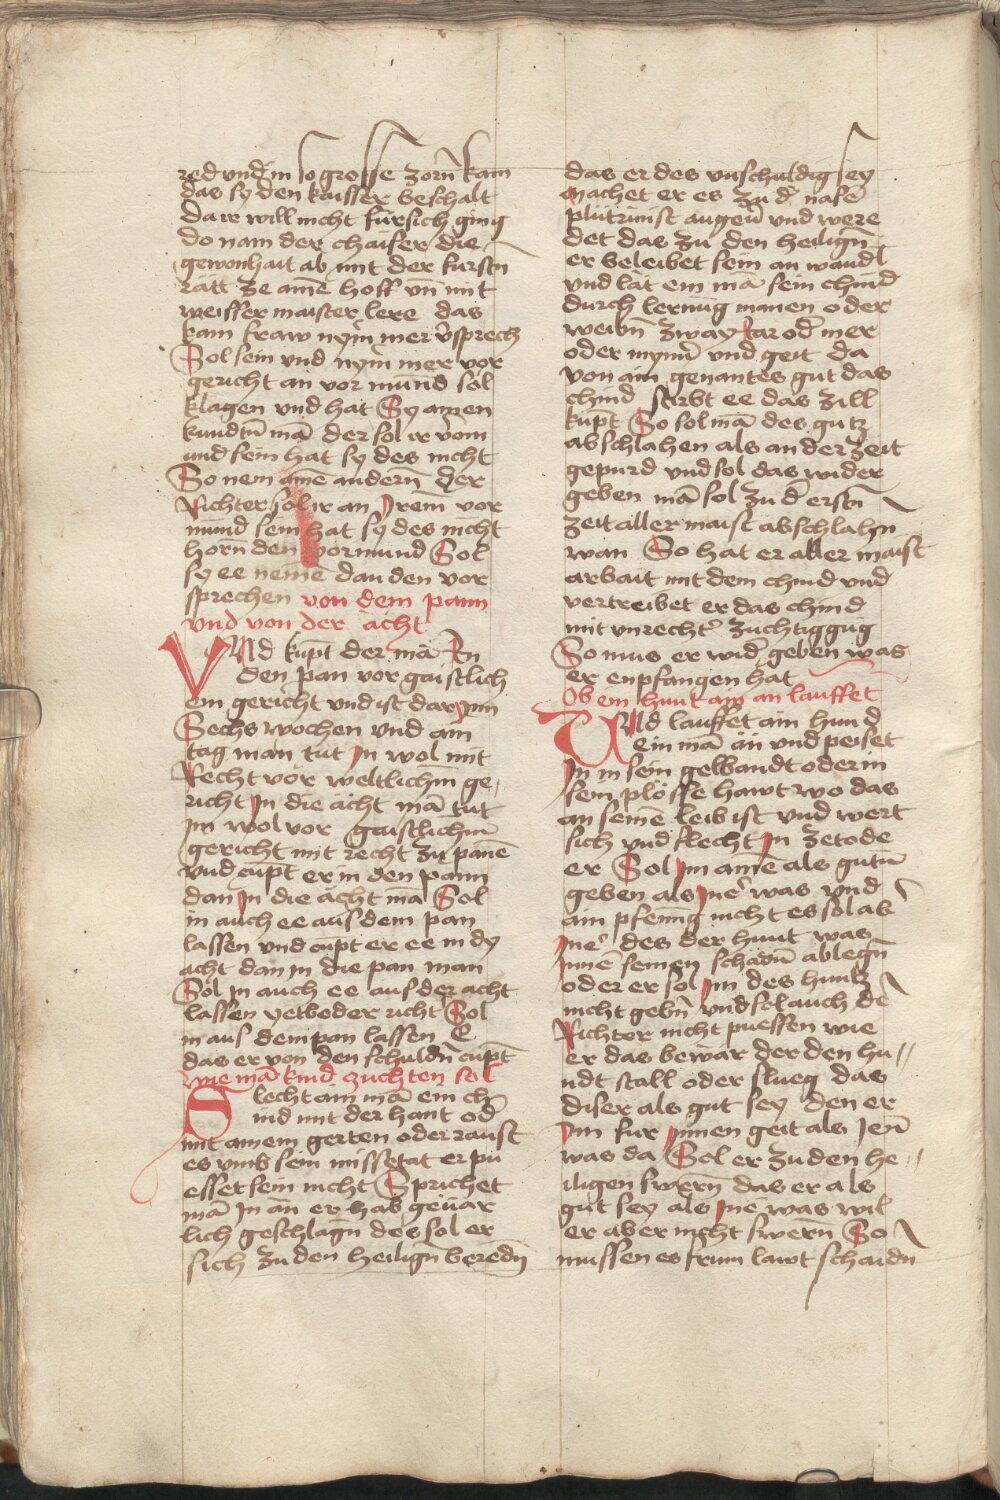 red und in so grosse zorn kam
das sy den kaisser beschalt
da ir will nicht fur sich ging
do nam der chaiser die
gewonhait ab mit der furstn̄
ratt ze ainē hoff vn̄ mit
weisser maister lere das
kain fraw nym̄ mer v̓sprech
Sol sein vnd nym̄ mer vor
gericht an vor mund sol
klagen vnd hat Sy ainen
kundn̄ mā der sol ir vorm
und sein hat sy des nicht
So nem ainē andern̄ der
Richter sol ir an Jrem vor
mund sein hat sy des nicht
horn̄ den vormund Sol
sy ee nemē dan den vor
sprechen von dem pann
vnd von der ächt
VNd kupt der mā In
den pan vor gaistlich
em gericht vnd ist dar jnn
Sechs wochen vnd ain
tag man tut Jn wol mit
Recht vor weltlichm ge
richt Jn die ächt mā tut
Jm wol vor gaistlichm̄
gericht mit recht zu panē
vnd cupt er in den pann
dan jn die ächt mā Sol
in auch ee aus dem pan
lassen vnd cupt er ee in dy
acht dan in die pan man
Sol jn auch ee aus der acht
lassen yetboder richt Sol
in aus dem pan lassen
das er von den schuldn̄ cupt
wie mā kind zuchten sol
Slecht ain mā ein ch
ind mit der hant od̓
mit ainem gerten oder raust
es vmb sein missetat er pu
esset sein nicht Sprichet
mā jn an er hab geuar
lich geschlagn̄ des sol er
sich zu den heilign̄ beredn̄
das er des vnschuldig sey
machet er es zu d̓ nasē
plutrunst augen̄ vnd were
det das zu den heilign̄
er beleibet sein an wandl
vnd lat ein mā sein chind
durch lernūg manen oder
weibn̄ zway Jar od̓ mer
oder mynn̄ vnd geit da
von ain genantes gut das
chind stirbt ee das zill
kupt So sol mā des gutz
abschlahen als an der zeit
gepurd vnd sol das wider
geben mā sol zu d̓ erstn̄
zeit aller maist abschlahn
wan So hat er aller maist
arbait mit dem chind vnd
vertreibet er das chind
mit vnrecht̓ zuchtiggūg
So mus er wid̓ geben was
er enpfangen hat
Ob ein hunt ain an lauffet
VNd lauffet ain hund
ein mā an vnd peiset
Jn in sein gebbandt oder in
sein plosse hawt wo das
an seinē leib ist vnd wert
sich vnd slecht Jn ze tode
er Sol Jm ainē als gutn̄
geben als Jne᷑ was vnd
ain pfening nicht es sol ab
Jne᷑ des der hunt was
Jnne seinen schadn̄ ablegn̄
oder er sol Jm des huntz
nicht gebn̄ vnd sol auch dē
Richter nicht puessen wie
er das bewar der den hu
ndt stall oder slueg das
diser als gut sey den er
Jm fur jnnen geit als Jen̄
was da Sol er zu den he
iligen swern̄ das er als
gut sey als jnē was wil
er aber nicht swern̄ So
mussen es frum lawt schaidn